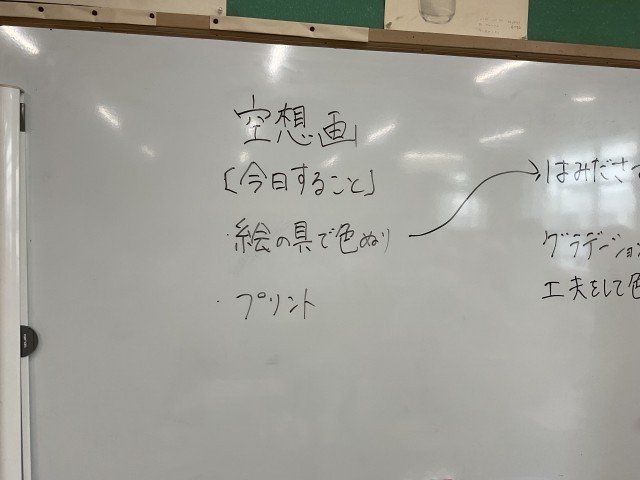 空想画
[今日すること]
・絵の具で色ぬり
・プリント
はみださず
グラデーション
工夫をして色